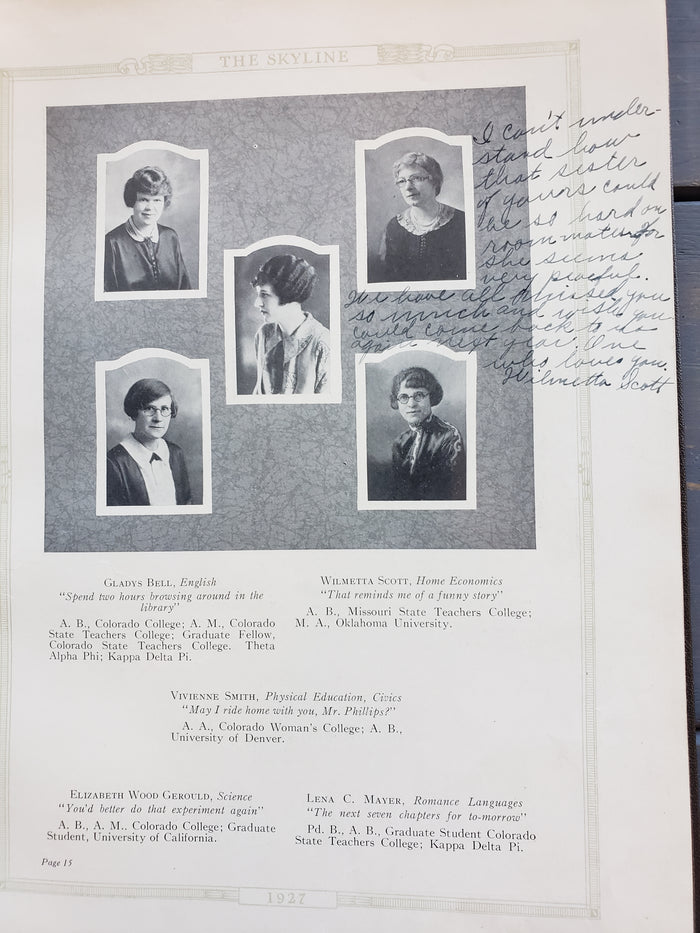 THE SKYLINE
I can't under-
stand how
that sister
of yours could
be so hard on
roommates for
she seems
very peaceful.
We have all missed you
so much and wish you
could come back to us
again next year. One
who loves you.
Wilmetta Scott
GLADYS BELL, English
"Spend two hours browsing around in the
library"
A. B., Colorado College; A. M., Colorado
State Teachers College; Graduate Fellow,
Colorado State Teachers College. Theta
Alpha Phi; Kappa Delta Pi.
WILMETTA SCOTT, Home Economics
"That reminds me of a funny story"
A. B., Missouri State Teachers College;
M. A., Oklahoma University.
VIVIENNE SMITH, Physical Education, Civics
"May I ride home with you, Mr. Phillips?"
A. A., Colorado Woman's College; A. B.,
University of Denver.
ELIZABETH WOOD GEROULD, Science
"You'd better do that experiment again"
A. B., A. M.. Colorado College; Graduate
Student, University of California.
LENA C. MAYER, Romance Languages
"The next seven chapters for to-morrow"
Pd. B., A. B., Graduate Student Colorado
State Teachers College; Kappa Delta Pi.
Page 15
1927